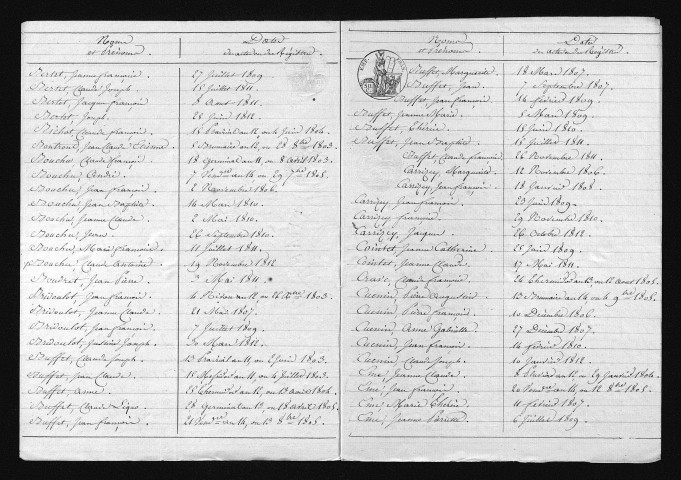 Noms et Prénoms. Dates des actes ou du Registre.
Bertet, Jeanne Françoise 27 Juillet 1809.
Bertet, Claude Joseph 15 Juillet 1811.
Bertet, Jacque François 8 Aout 1811.
Bertet, Joseph 28 Juin 1812.
Claude François 15 Prairial an 12 ou 4 Juin 1804.
Jeanne Claude Etienne 5 Brumaire an 12 ou 28 8bre 1803.
Bouchu, Claude François 18 Germinal an 11 ou 8 Avril 1803.
Bouchu, 7 an 14 ou 29 7bre 1805.
Bouchu, Jean François 2 Novembre 1806.
Bouchu, Jean Baptiste 14 Mars 1810.
Bouchu, Jeanne Claude 2 Mai 1810.
Bouchu, 26 Septembre 1810.
Bouchu, Marie Françoise 11 Juillet 1811.
Bouchu, Claude Antoine 19 Novembre 1812.
Jean Pierre Mai 1811.
Bridoulot, Jean François 1803.
Bridoulot, Jeanne Claude 21 Mai 1807.
Bridoulot, Jean François 7 Juillet 1809.
Bridoulot, Joseph 30 Mars 1812.
Buffet, Claude Joseph 13 Prairial an 11 ou 2 Juin 1803.
Buffet, Jean Claude 15 Messidor an 11 ou 4 Juillet 1803.
Buffet, Anne 25 Thermidor an 12 ou 13 Aout 1804.
Buffet, Claude 28 Germinal an 13 ou 18 Avril 1805.
Buffet, Jean François 21 an 14 ou 13 8bre 1805.
Noms et Prénoms. Dates des actes ou du Registre.
Buffet, Marguerite 18 Mars 1807.
Buffet, Jean 7 Septembre 1807.
Buffet, Jean François 16 Février 1809.
Buffet, Jeanne Marie 5 Mars 1809.
Buffet, Thérèse 18 Juin 1810.
Buffet, Jean Baptiste 15 Juillet 1811.
Buffet, Claude François 26 Novembre 1811.
Carrizey, Marguerite 12 Novembre 1806.
Carrizey, Jean François 18 Janvier 1808.
Carrizey, Jean François 23 Juin 1809.
Carrizey, François 29 Novembre 1810.
Carrizey, Jacques 26 Octobre 1812.
Cointet, Jeanne Catherine 25 Juin 1809.
Cointet, Jeanne Claude 17 Mai 1811.
Claude François 24 Thermidor an 13 ou 12 Aout 1805.
Cuenin, Pierre Augustin 13 Brumaire an 14 ou 4 9bre 1805.
Cuenin, Pierre François 10 Décembre 1806.
Cuenin, Anne Gabrielle 27 Décembre 1807.
Cuenin, Jean François 14 Février 1810.
Cuenin, Claude Joseph 10 Janvier 1812.
Jeanne Claude 8 an 12 ou 29 Janvier 1804.
Jean François 20 an 14 ou 12 8bre 1805.
Marie Thérèse 11 Février 1807.
Jeanne Pierrette 6 Juillet 1809.